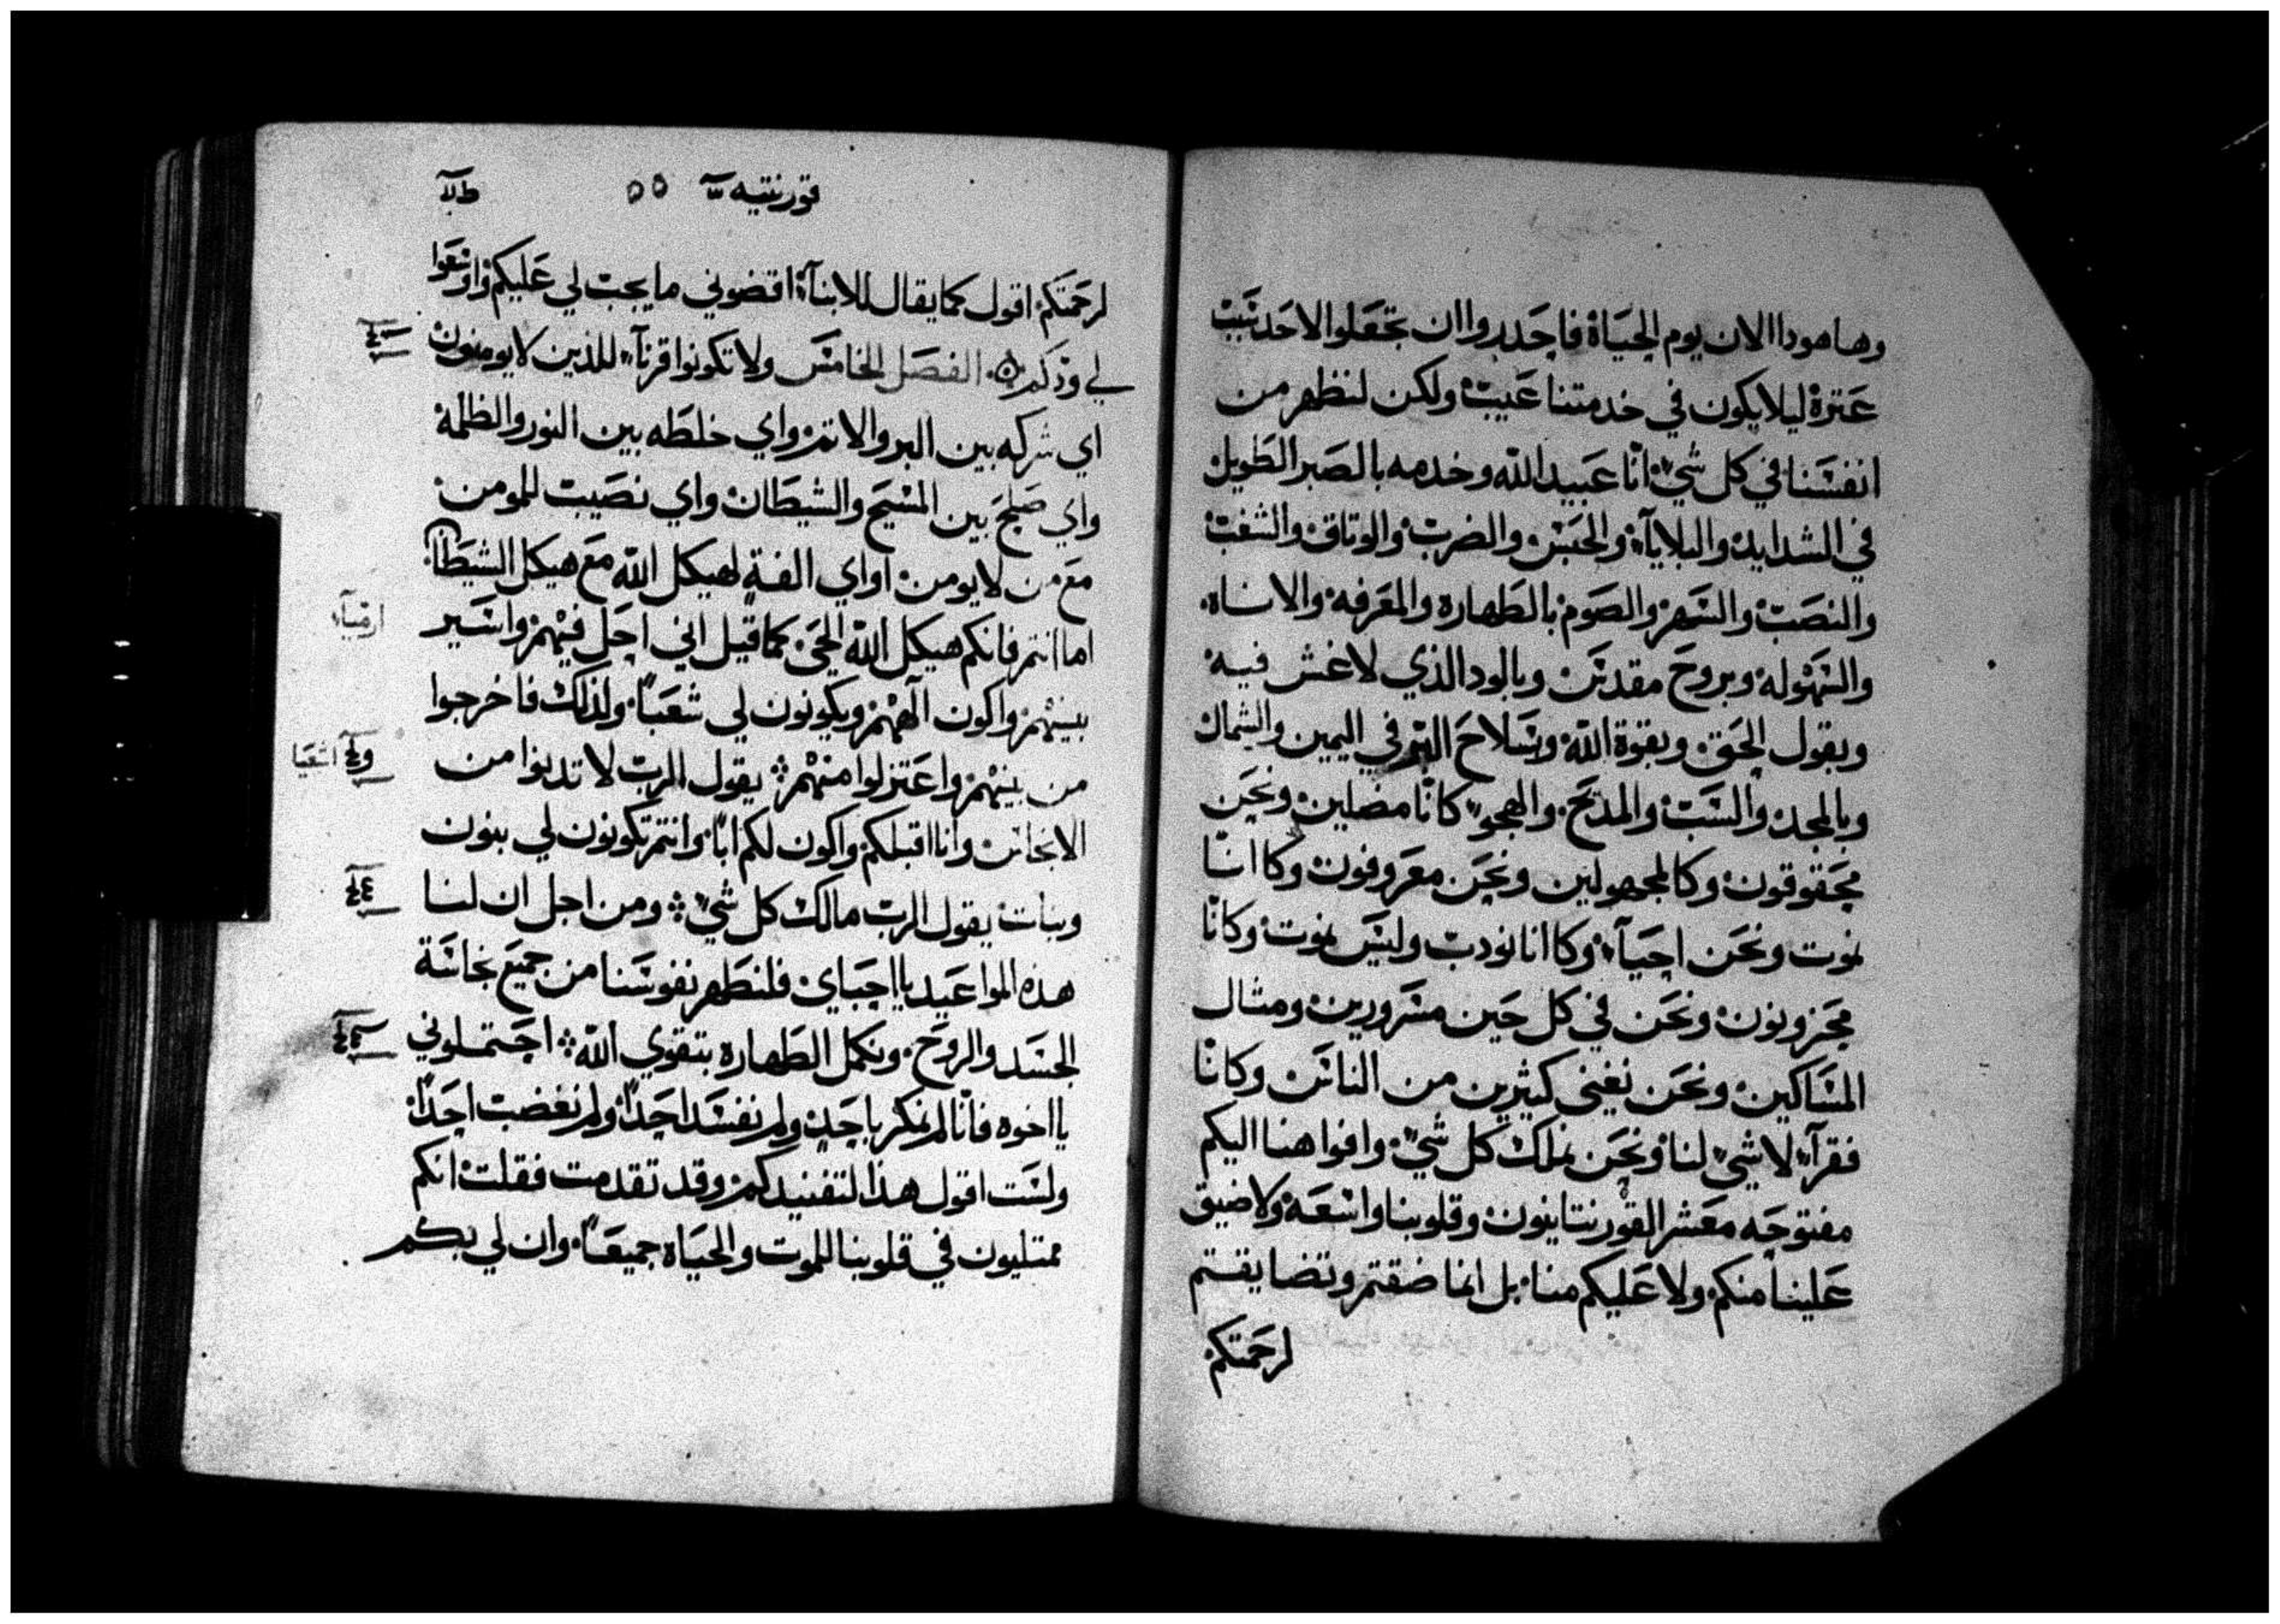 وها هودا الان يوم الحياة فاحدروا ان تجعلوا لاحد سبب
عترة ليلا يكون في خدمتنا عيب ولكن لنظهر من
انفسنا في كل شي انا عبيد الله وخدمه بالصبر الطويل
في الشدايد والبلايآء والحبس والضرب والوتاق والشغب
والنصب والسهر والصوم بالطهاره والمعرفه والاناه
والسهوله وبروح مقدس وبالود الذي لا غش فيه
وبقول الحق وبقوة الله وبسلاح البر في اليمين والشمال
وبالمجد والسب والمديح والهجو كانا مضلين ونحن
محقوقون وكالمجهولين ونحن معروفون وكااننا
نموت ونحن احيآء وكاانا نودب وليس نموت وكانا
محزونون ونحن في كل حين مسرورين ومثال
المساكين ونحن نغني كثيرين من الناس وكانا
فقرآء لا شي لنا ونحن نملك كل شي وافواهنا اليكم
مفتوحه معشر القورنتانيون وقلوبنا واسعه ولا ضيق
علينا منكم ولا عليكم منا بل انما ضقتم وتضايقتم
لرحمتكم
قورنتيه ٥٥
لرحمتكم اقول كما يقال للابنآء اقضوني ما يجب لي عليكم واوسعوا
لي ودكم الفصل الخامس ولا تكونوا قرنآء للذين لا يومنون
اي شركه بين البر والاتم واي خلطه بين النور والظلمه
واي صلح بين المسيح والشيطان واي نصيب للمومن
مع من لا يومن او اي الفة لهيكل الله مع هيكل الشيطان
اما انتم فانكم هيكل الله الحي كما قيل اني احل فيهم واسير
ارميآء
بينهم واكون آلههم ويكونون لي شعبا ولذلك فاخرجوا
من بينهم واعتزلوا منهم يقول الرب لا تدنوا من
اشعيا
الانجاس وانا اقبلكم واكون لكم ابا وانتم تكونون لي بنون
وبنات يقول الرب مالك كل شي ومن اجل ان لنا
هذه المواعيد يا احباي فلنطهر نفوسنا من جميع نجاسة
الجسد والروح ونكمل الطهاره بتقوي الله احتملوني
يا اخوه فانا لم نمكر باحد ولم نفسد احدا ولم نغضب احدا
ولست اقول هذا لتفنيدكم وقد تقدمت فقلت انكم
ممتليون في قلوبنا للموت والحياه جميعا وان لي بكم